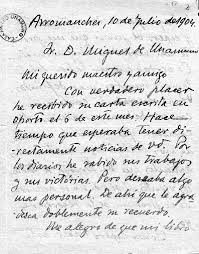 Arromanches, 10 de Julio de 1904
Sr. D. Miguel de Unamuno
Mi querido maestro y amigo
Con verdadero placer
he recibido su carta escrita en
Oporto el 6 de este mes. Hace
tiempo que esperaba tener di-
rectamente noticias de vd. Por
los diarios he sabido sus trabajos
y sus victorias. Pero deseaba algo
mas personal. De ahi que le agra-
dezca doblemente su recuerdo.
Me alegro de que mi libro